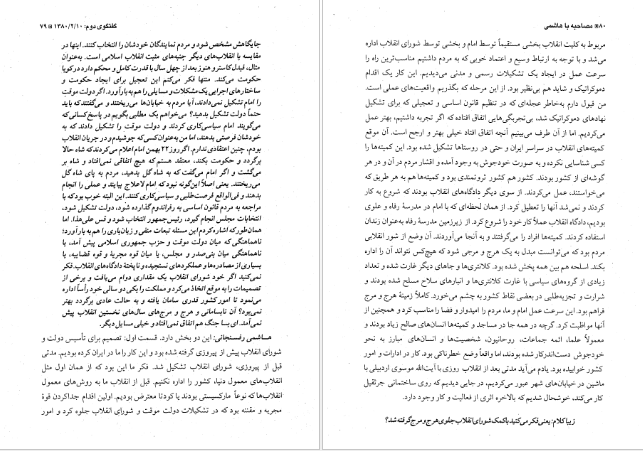 ۸۰ ■ مصاحبه با هاشمی
مربوط به کلیت انقلاب بخشی مستقیماً توسط امام و بخشی توسط شورای انقلاب اداره
می‌شد و با توجه به ارتباط وسیع و اعتماد خوبی که به مردم داشتیم مناسب‌ترین راه را
سرعت عمل در ایجاد یک تشکیلات رسمی و مدنی می‌دیدیم. این کار یک اقدام
دموکراتیک و شاید هم بی‌نظیر بود. از این مرحله که بگذریم واقعیت‌های عملی است.
من قبول دارم به‌خاطر عجله‌ای که در تنظیم قانون اساسی و تعجیلی که برای تشکیل
نهادهای دموکراتیک شد، بی‌تجربگی‌هایی اتفاق افتاده که اگر تجربه داشتیم، بهتر عمل
می‌کردیم. اما از آن طرف می‌بینیم آنچه اتفاق افتاد خیلی بهتر و ارجح است. آن موقع
کمیته‌های انقلاب در سراسر ایران و حتی در روستاها تشکیل شده بود. این کمیته‌ها را
کسی شناسایی نکرده و به صورت خودجوش به وجود آمده و اقشار مردم در آن و در هر
گوشه‌ای از کشور بودند. کشور هم کشور ثروتمندی بود و کمیته‌ها هم به هر طریق که
می‌خواستند، عمل می‌کردند. از سوی دیگر دادگاه‌های انقلاب بودند که شروع به کار
کردند و نمی‌شد آنها را تعطیل کرد. از همان لحظه‌ای که با امام در مدرسهٔ رفاه و علوی
بودیم، دادگاه انقلاب عملاً کار خود را شروع کرد. از زیرزمین مدرسهٔ رفاه به‌عنوان زندان
استفاده کردند. کمیته‌ها افراد را می‌گرفتند و به آنجا می‌آوردند. آن وضع از شور انقلابی
مردم بود که می‌توانست مبدل به یک هرج و مرجی شود که هیچ‌کس نتواند آن را اداره
کند. اسلحه هم بین همه پخش شده بود. کلانتری‌ها و جاهای دیگر غارت شده و تعداد
زیادی از گروه‌های سیاسی با غارت کلانتری‌ها و انبارهای سلاح مسلح شده بودند و
شرارت و تجزیه‌طلبی در بعضی نقاط کشور به چشم می‌خورد. کاملاً زمینهٔ هرج و مرج
فراهم بود. این سرعت عمل امام و ما، مردم را امیدوار و فضا را مناسب کرد و همچنین از
آنها مواظبت کرد. گرچه در همه جا در مساجد و کمیته‌ها انسان‌های صالح زیاد بودند و
معمولاً علما، ائمه جماعات، روحانیون، شخصیت‌ها و انسان‌های مبارز به نحو
خودجوش دست‌اندرکار شده بودند، اما واقعاً وضع خطرناکی بود. کار در ادارات و امور
کشور خوابیده بود. یادم می‌آید مدتی بعد از انقلاب روزی با آیت‌الله موسوی اردبیلی با
ماشین در خیابان‌های شهر عبور می‌کردیم، در جایی دیدیم که روی ساختمانی جرثقیل
کار می‌کند، خوشحال شدیم که بالاخره اثری از فعالیت و کار وجود دارد.
زیباکلام: یعنی فکر می‌کنید با کمک شورای انقلاب جلوی هرج و مرج گرفته شد؟
گفتگوی دوم: ۱۳۸۰/۲/۱۰ ■ ۷۹
جایگاهش مشخص شود و مردم نمایندگان خودشان را انتخاب کنند. اینها در
مقایسه با انقلاب‌های دیگر جنبه‌های مثبت انقلاب اسلامی است. به‌عنوان
مثال، فیدل کاسترو هنوز بعد از چهل سال با قدرت کامل و محکم دارد در کوبا
حکومت می‌کند. منتها فکر می‌کنم این تعجیل برای ایجاد حکومت و
ساختارهای اجرایی یک مشکلات و مسایلی را هم به‌بار آورد. اگر دولت موقت
را امام تشکیل نمی‌دادند، آیا مردم به خیابان‌ها می‌ریختند و می‌گفتند که باید
حتماً دولت تشکیل بدهید؟ می‌خواهم یک مطلبی بگویم در پاسخ کسانی که
می‌گویند امام سیاسی‌کاری کردند و دولت موقت را تشکیل دادند که به
خودشان فرصتی بدهند، اما من به‌عنوان کسی که جوشیدم و در جریان انقلاب
بودم، چنین اعتقادی ندارم. اگر روز ۲۲ بهمن امام اعلام می‌کردند که شاه حالا
برگردد و حکومت بکند، معتقد هستم که هیچ اتفاقی نمی‌افتاد و شاه بر
می‌گشت و اگر امام می‌گفت که به شاه گل بدهید، مردم به پای شاه گل
می‌ریختند. یعنی اصلاً این‌گونه نبود که امام لاعلاج بیایند و عملی را انجام
بدهند و فی‌الواقع فرصت‌طلبی و سیاسی‌کاری کنند. این البته خوب بود که با
مراجعه به مردم قانون اساسی به رفراندوم گذارده شود، دولت تشکیل شود،
انتخابات مجلس انجام گیرد، رئیس‌جمهور انتخاب شود و قس علی‌هذا. اما
همان‌طور که اشاره کردم این مسئله تبعات منفی و زیان‌باری را هم به‌بار آورد؛
ناهماهنگی که میان دولت موقت و حزب جمهوری اسلامی پیش آمد، یا
ناهماهنگی میان بنی‌صدر و مجلس، یا میان قوه مجریه و قوه قضاییه، یا
بسیاری از مصادره‌ها و عملکردهای نسنجیده و ناپختهٔ دادگاه‌های انقلاب. فکر
نمی‌کنید اگر خود شورای انقلاب یک مقداری دوام می‌یافت و برخی از
تصمیمات را به موقع اتخاذ می‌کرد و مملکت را یکی دو سالی خود رأساً اداره
می‌نمود تا امور کشور قدری سامان یافته و به حالت عادی برگردد بهتر
نمی‌بود؟ آن نابسامانی و هرج و مرج‌های سال‌های نخستین انقلاب پیش
نمی‌آمد. ای بسا جنگ هم اتفاق نمی‌افتاد و خیلی مسایل دیگر.
هاشمی رفسنجانی: این دو بخش دارد. قسمت اول؛ تصمیم برای تأسیس دولت و
شورای انقلاب پیش از پیروزی گرفته شده بود و این کار را ما در ایران کرده بودیم. مدتی
قبل از پیروزی، شورای انقلاب تشکیل شد. فکر ما این بود که از همان اول مثل
انقلاب‌های معمول دنیا، کشور را اداره نکنیم. قبل از انقلاب ما به روش‌های معمول
انقلاب‌ها که نوعاً مارکسیستی بودند یا کودتا معترض بودیم. اولین اقدام جداکردن قوهٔ
مجریه و مقننه بود که در تشکیلات دولت موقت و شورای انقلاب جلوه کرد و امور